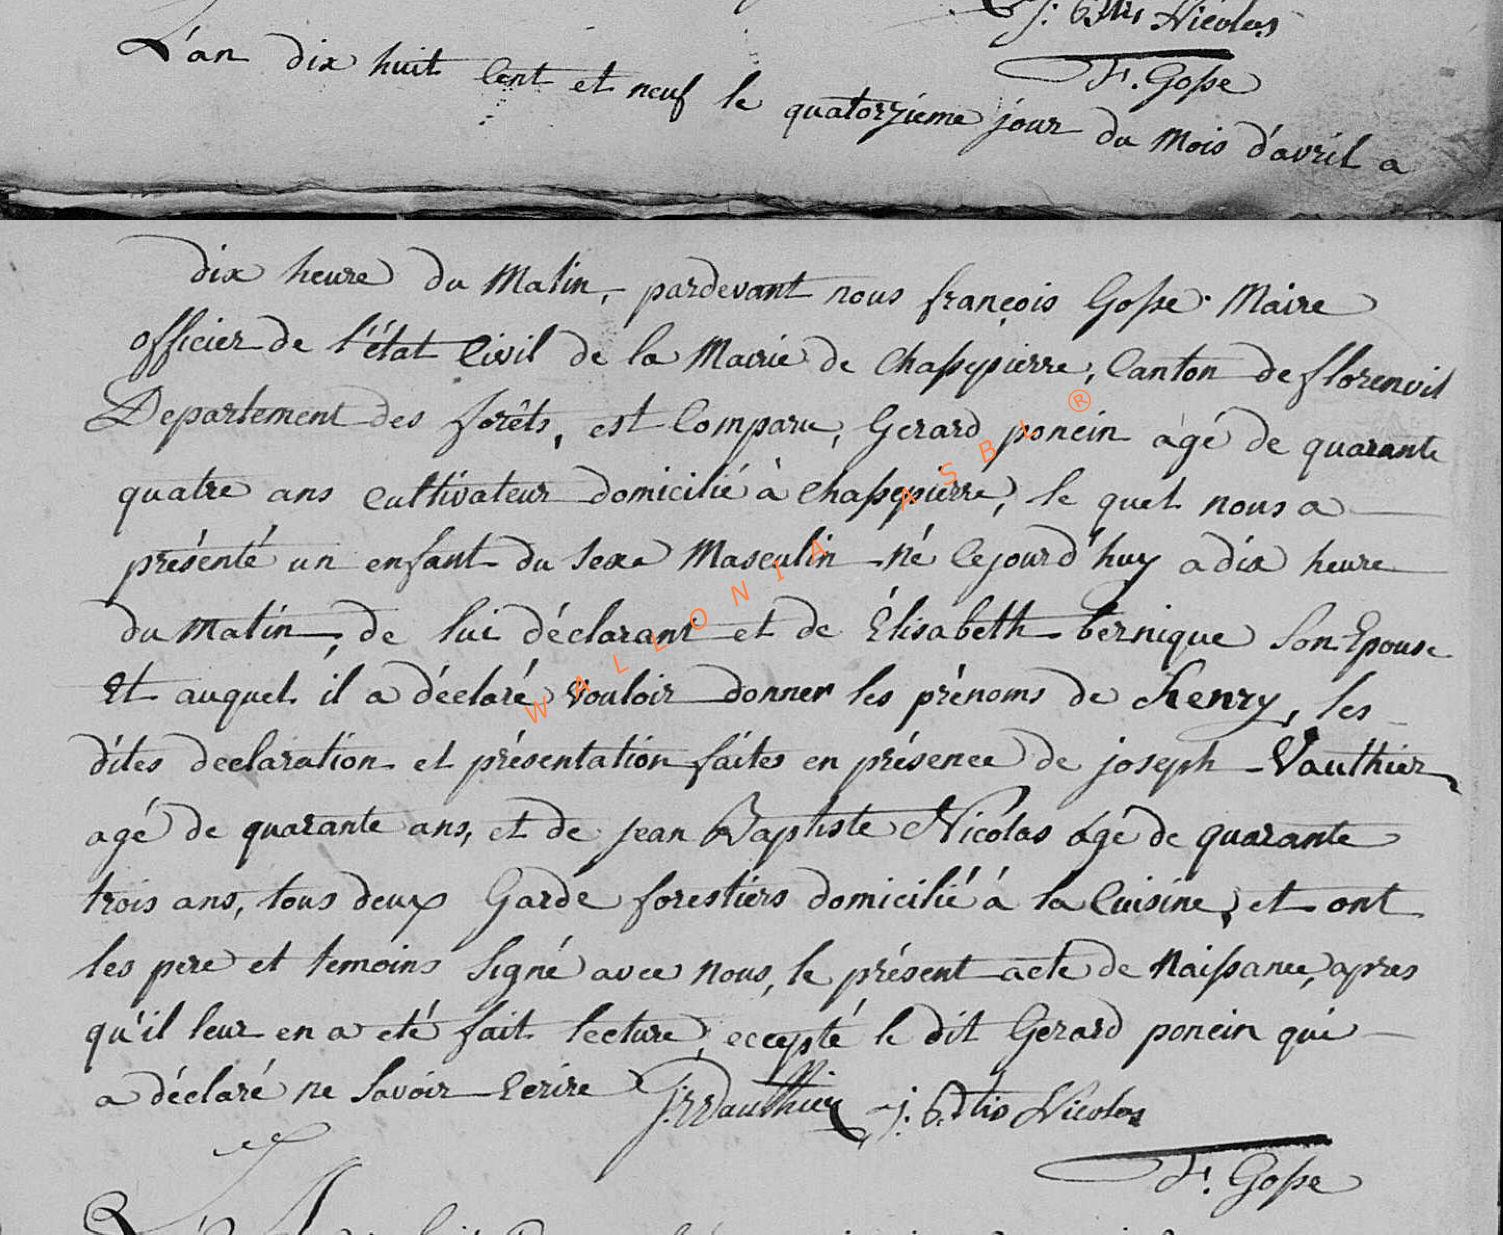 j: Btis Nicolas
F. Gosse
L'an dix huit Cent et neuf le quatorzieme jour du Mois d'avril a
dix heure du Matin, pardevant nous françois Gosse Maire
officier de l'état Civil de la Mairie de Chassepierre, Canton de florenvil
Departement des forêts, est Comparu, Gerard poncin agé de quarante
quatre ans Cultivateur domicilié à Chassepierre, le quel nous a
présenté un enfant du sexe Masculin né Cejourd'huy a dix heure
du Matin, de lui déclarant et de Élisabeth bernique Son Epouse
Et auquel il a déclaré Vouloir donner les prénoms de henry, les
dites declaration et présentation faites en présence de joseph Vauthier
agé de quarante ans, et de jean Baptiste Nicolas agé de quarante
trois ans, tous deux Garde forestiers domicilié à la Cuisine, et ont
les pere et temoins Signé avec nous, le présent acte de Naissance, apres
qu'il leur en a eté fait lecture, eccepté le dit Gerard poncin qui
a déclaré ne Savoir Ecrire Vauthier j: Btis Nicolas
F. Gosse
WALLONIA ASBL ®